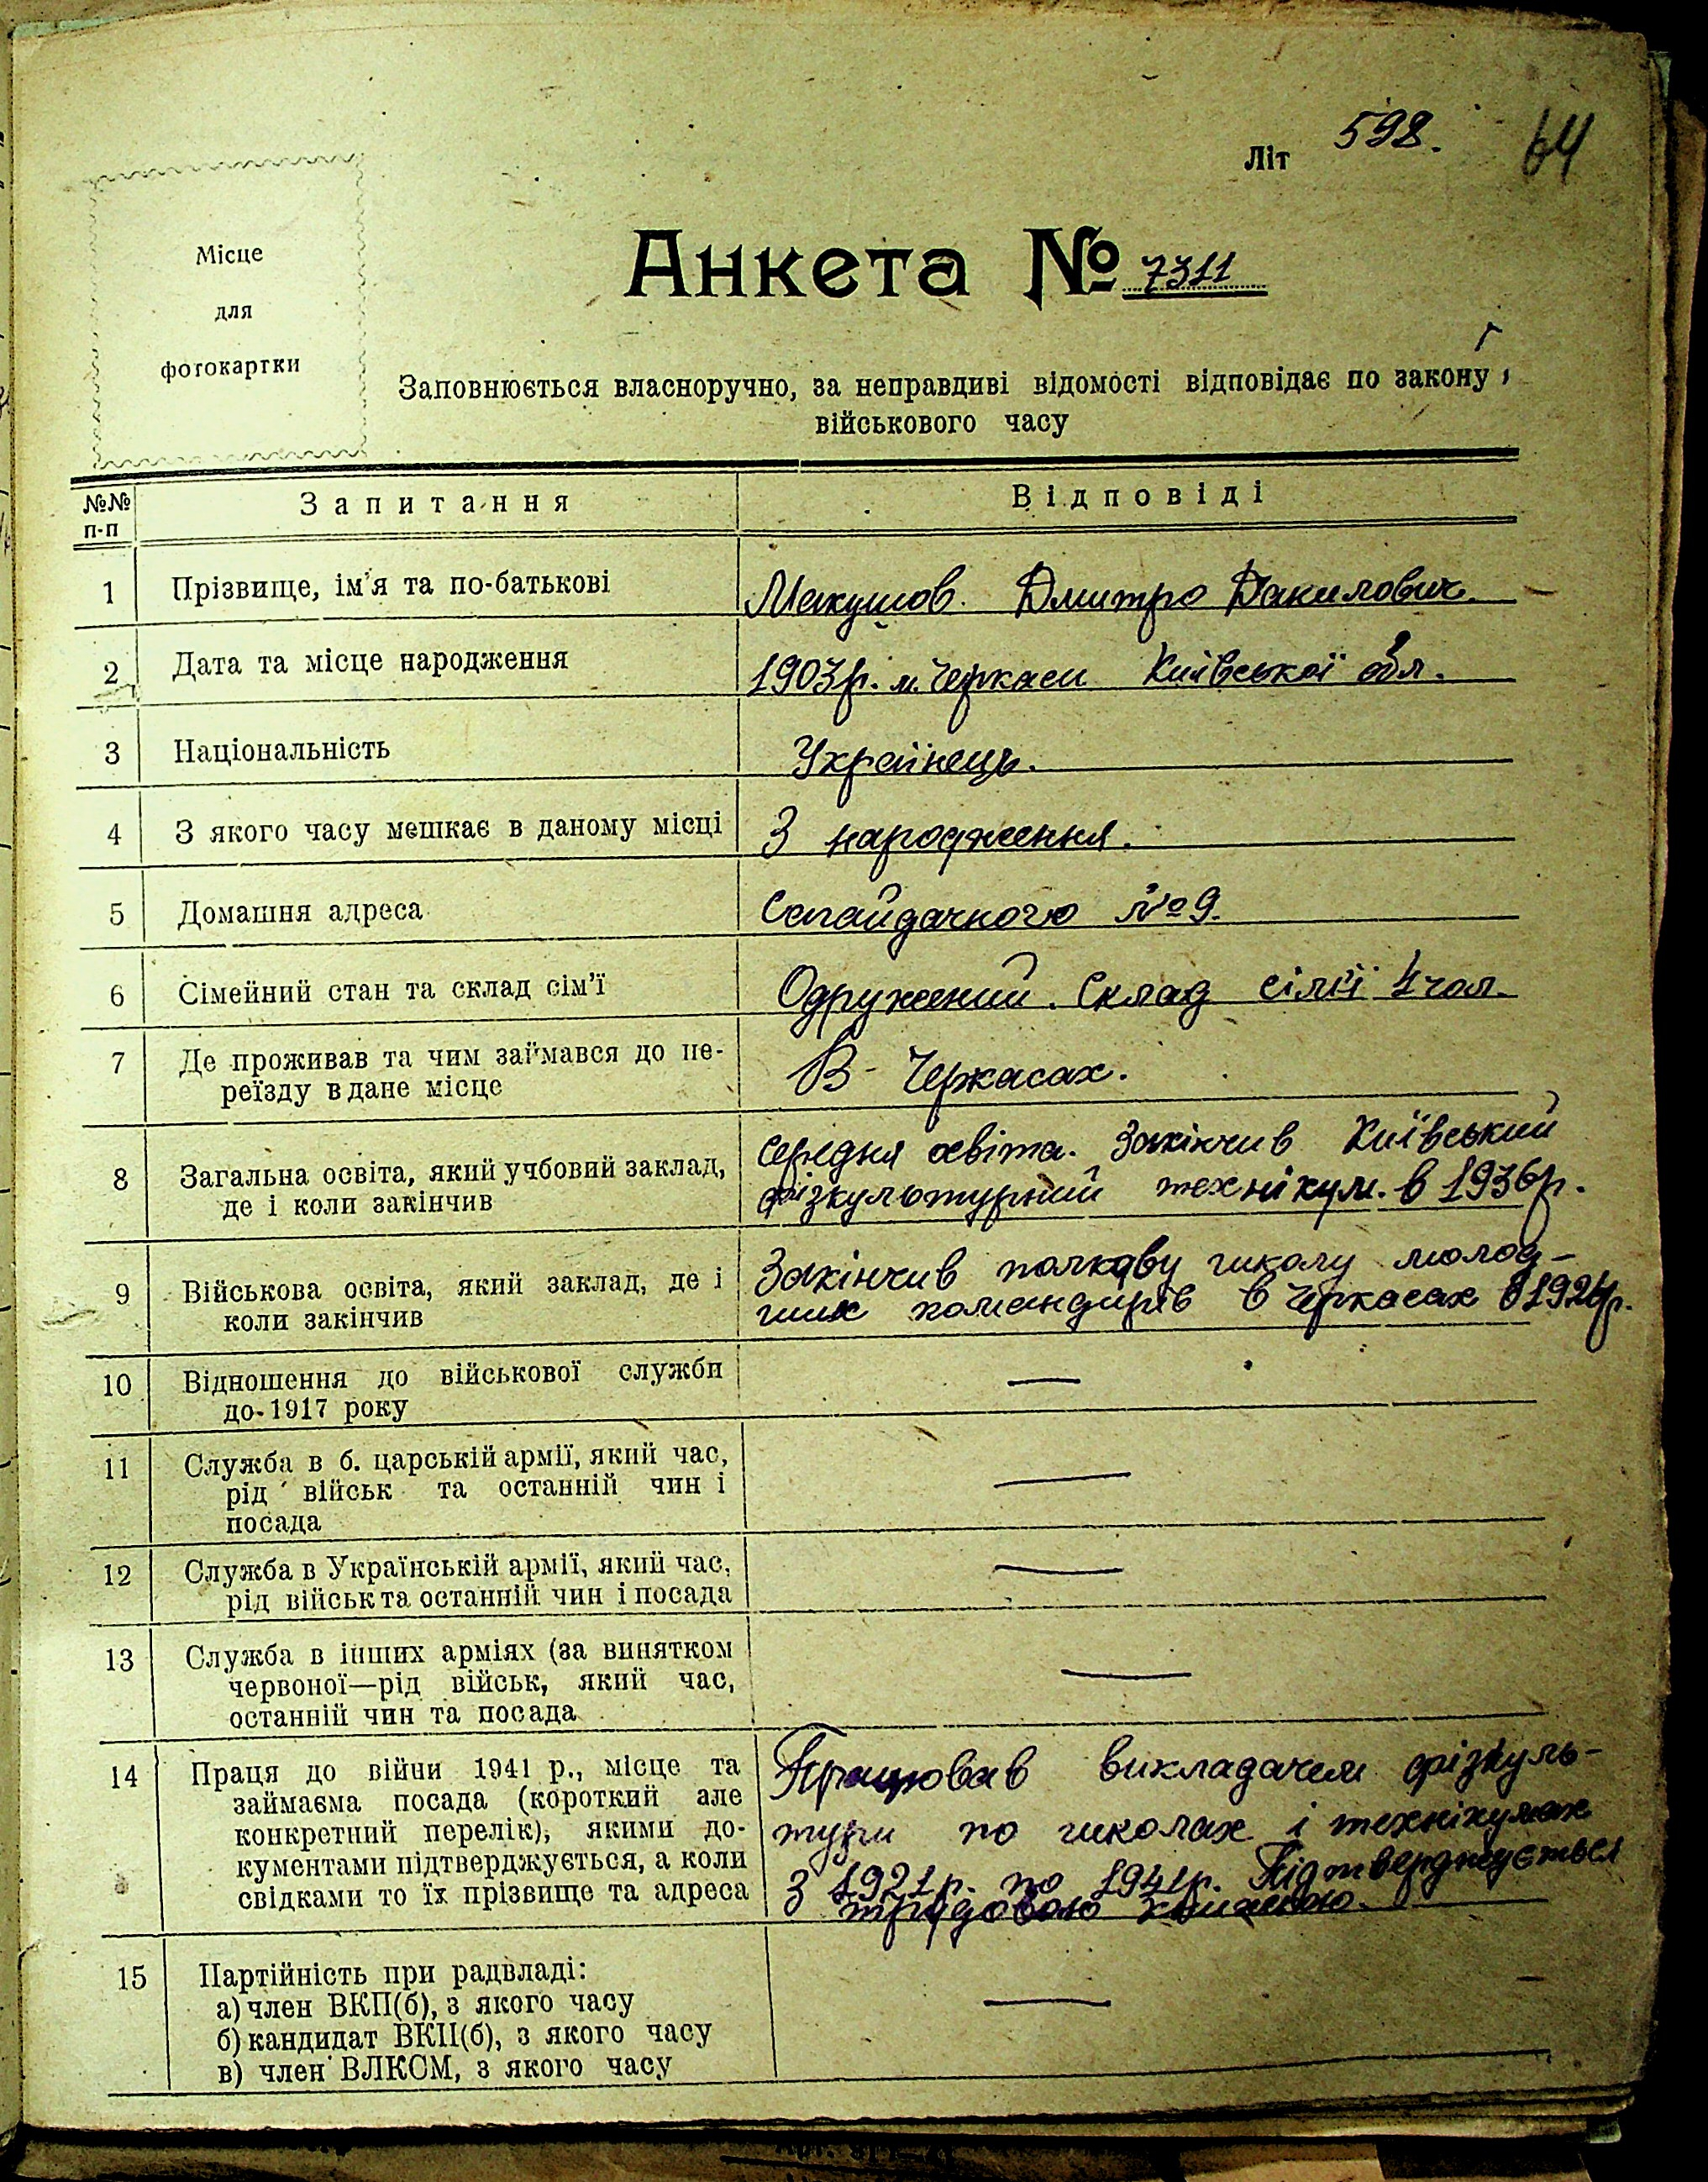 598.
Літ
64
Місце
для
фотокартки
Анкета № 7311
Заповнюється власноручно, за неправдиві відомості відповідає по закону
військового часу
№№ п-п
Запитання
Відповіді
1
Прізвище, ім'я та по-батькові
Макушов Дмитро Данилович.
2
Дата та місце народження
1903р. м. Черкаси Київської обл.
3
Національність
Українець.
4
З якого часу мешкає в даному місці
З народження.
5
Домашня адреса
Сагайдачного №9.
6
Сімейний стан та склад сім'ї
Одружений. Склад сім'ї 4 чол.
7
Де проживав та чим займався до пе-
реїзду в дане місце
В- Черкасах.
8
Загальна освіта, який учбовий заклад,
де і коли закінчив
Середня освіта. Закінчив Київський
фізкультурний технікум. в 1936р.
9
Військова освіта, який заклад, де і
коли закінчив
Закінчив полкову школу молод-
ших командирів в Черкасах в 1924р.
10
Відношення до військової служби
до 1917 року
—
11
Служба в б. царській армії, який час,
рід військ та останній чин і
посада
—
12
Служба в Українській армії, який час,
рід військ та останній чин і посада
—
13
Служба в інших арміях (за винятком
червоної—рід військ, який час,
останній чин та посада
—
14
Праця до війни 1941 р., місце та
займаєма посада (короткий але
конкретний перелік), якими до-
кументами підтверджується, а коли
свідками то їх прізвище та адреса
Працював викладачем фізкуль-
тури по школах і технікумах
З 1921р. по 1941р. Підтверджується
трудовою книжкою.
15
Партійність при радвладі:
а) член ВКП(б), з якого часу
б) кандидат ВКП(б), з якого часу
в) член ВЛКСМ, з якого часу
—